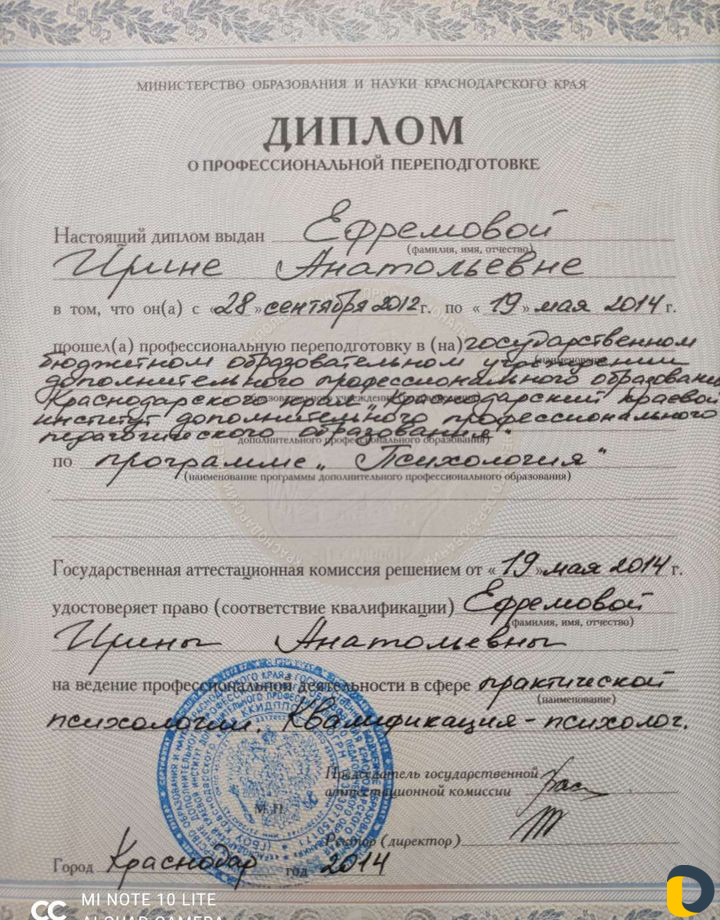 МИНИСТЕРСТВО ОБРАЗОВАНИЯ И НАУКИ КРАСНОДАРСКОГО КРАЯ
ДИПЛОМ
О ПРОФЕССИОНАЛЬНОЙ ПЕРЕПОДГОТОВКЕ
Настоящий диплом выдан Ефремовой
(фамилия, имя, отчество)
Ирине Анатольевне
в том, что он(а) с «28» сентября 2012 г. по «19» мая 2014 г.
прошел(а) профессиональную переподготовку в (на) государственном
(наименование
бюджетном образовательном учреждении
дополнительного профессионального образования
Краснодарского края "Краснодарский краевой
институт дополнительного профессионального
педагогического образования"
дополнительного профессионального образования)
по программе „Психология"
(наименование программы дополнительного профессионального образования)
Государственная аттестационная комиссия решением от «19» мая 2014 г.
удостоверяет право (соответствие квалификации) Ефремовой
(фамилия, имя, отчество)
Ирины Анатольевны
на ведение профессиональной деятельности в сфере практической
(наименование)
психологии. Квалификация - психолог.
Председатель государственной
аттестационной комиссии
М.П.
Ректор (директор)
Город Краснодар год 2014
MI NOTE 10 LITE
AI QUAD CAMERA